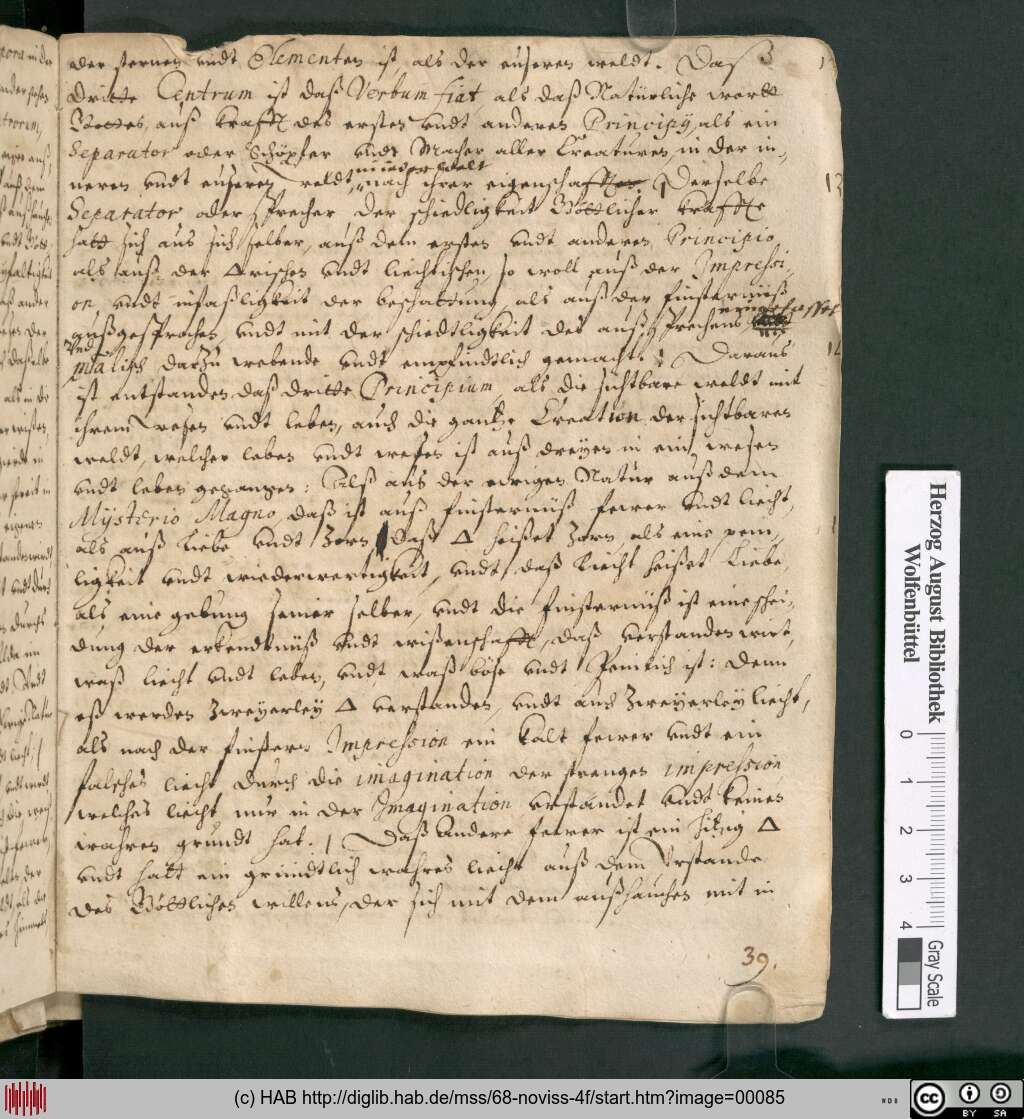 der sternen undt Elementen ist als der euseren weldt. Daß 3
dritte Centrum ist daß Verbum fiat, als daß Natürliche wortt
Gottes, auß krafft des ersten undt anderen Principÿ, als ein
Separator oder Schöpfer undt Macher aller Creaturen, in der in-
neren undt euseren weldt, nach ihrer eigenschafft. Derselbe
Separator oder sprecher der schiedligkeit Göttlicher kraffte
hatt sich aus sich selber, auß dem ersten undt anderen Principio
als auß der △rischen undt liechtischen, so woll auß der Impressi-
on, undt infaßligkeit der beschattung, als auß der finsternuß
außgesprochen undt mit der schiedtligkeit des außsprechens
darzu webende undt empfindtlich gemacht. Daraus
ist entstanden daß dritte Principium, als die sichtbare weldt mit
ihrem wesen undt leben, auch die gantze Creation der sichtbaren
weldt, welcher leben undt wesen ist auß dreyen in ein wesen
undt leben gegangen: Alß aus der ewigen Natur auß dem
Mÿsterio Magno, daß ist auß finsternuß feuer undt liecht,
als auß Liebe undt Zorn. Daß △ heißet Zorn, als eine pein-
ligkeit undt wiederwertigkeit, undt daß Liecht heißet Liebe,
als eine gebung seiner selber, undt die finsternuß ist eine schei-
dung der erkendtnuß undt wißenschafft, daß verstanden wirt,
waß liecht undt leben, undt waß böse undt Peinlich ist: Denn
eß werden Zweyerley △ verstanden, undt auch Zweyerley liecht,
als nach der finstern Impression ein kalt feuer undt ein
falsches liecht durch die imagination der strengen impression
welches liecht nur in der Imagination urstandet undt keinen
wahren grundt hat. Daß Andere feuer ist ein hitzig △
undt hatt ein gründtlich wahres liecht auß dem Urstande
des Göttlichen willens, der sich mit dem außhauchen mit in
39.
Herzog August Bibliothek
Wolfenbüttel
0 1 2 3 4
Gray Scale
(c) HAB http://diglib.hab.de/mss/68-noviss-4f/start.htm?image=00085
cc BY SA